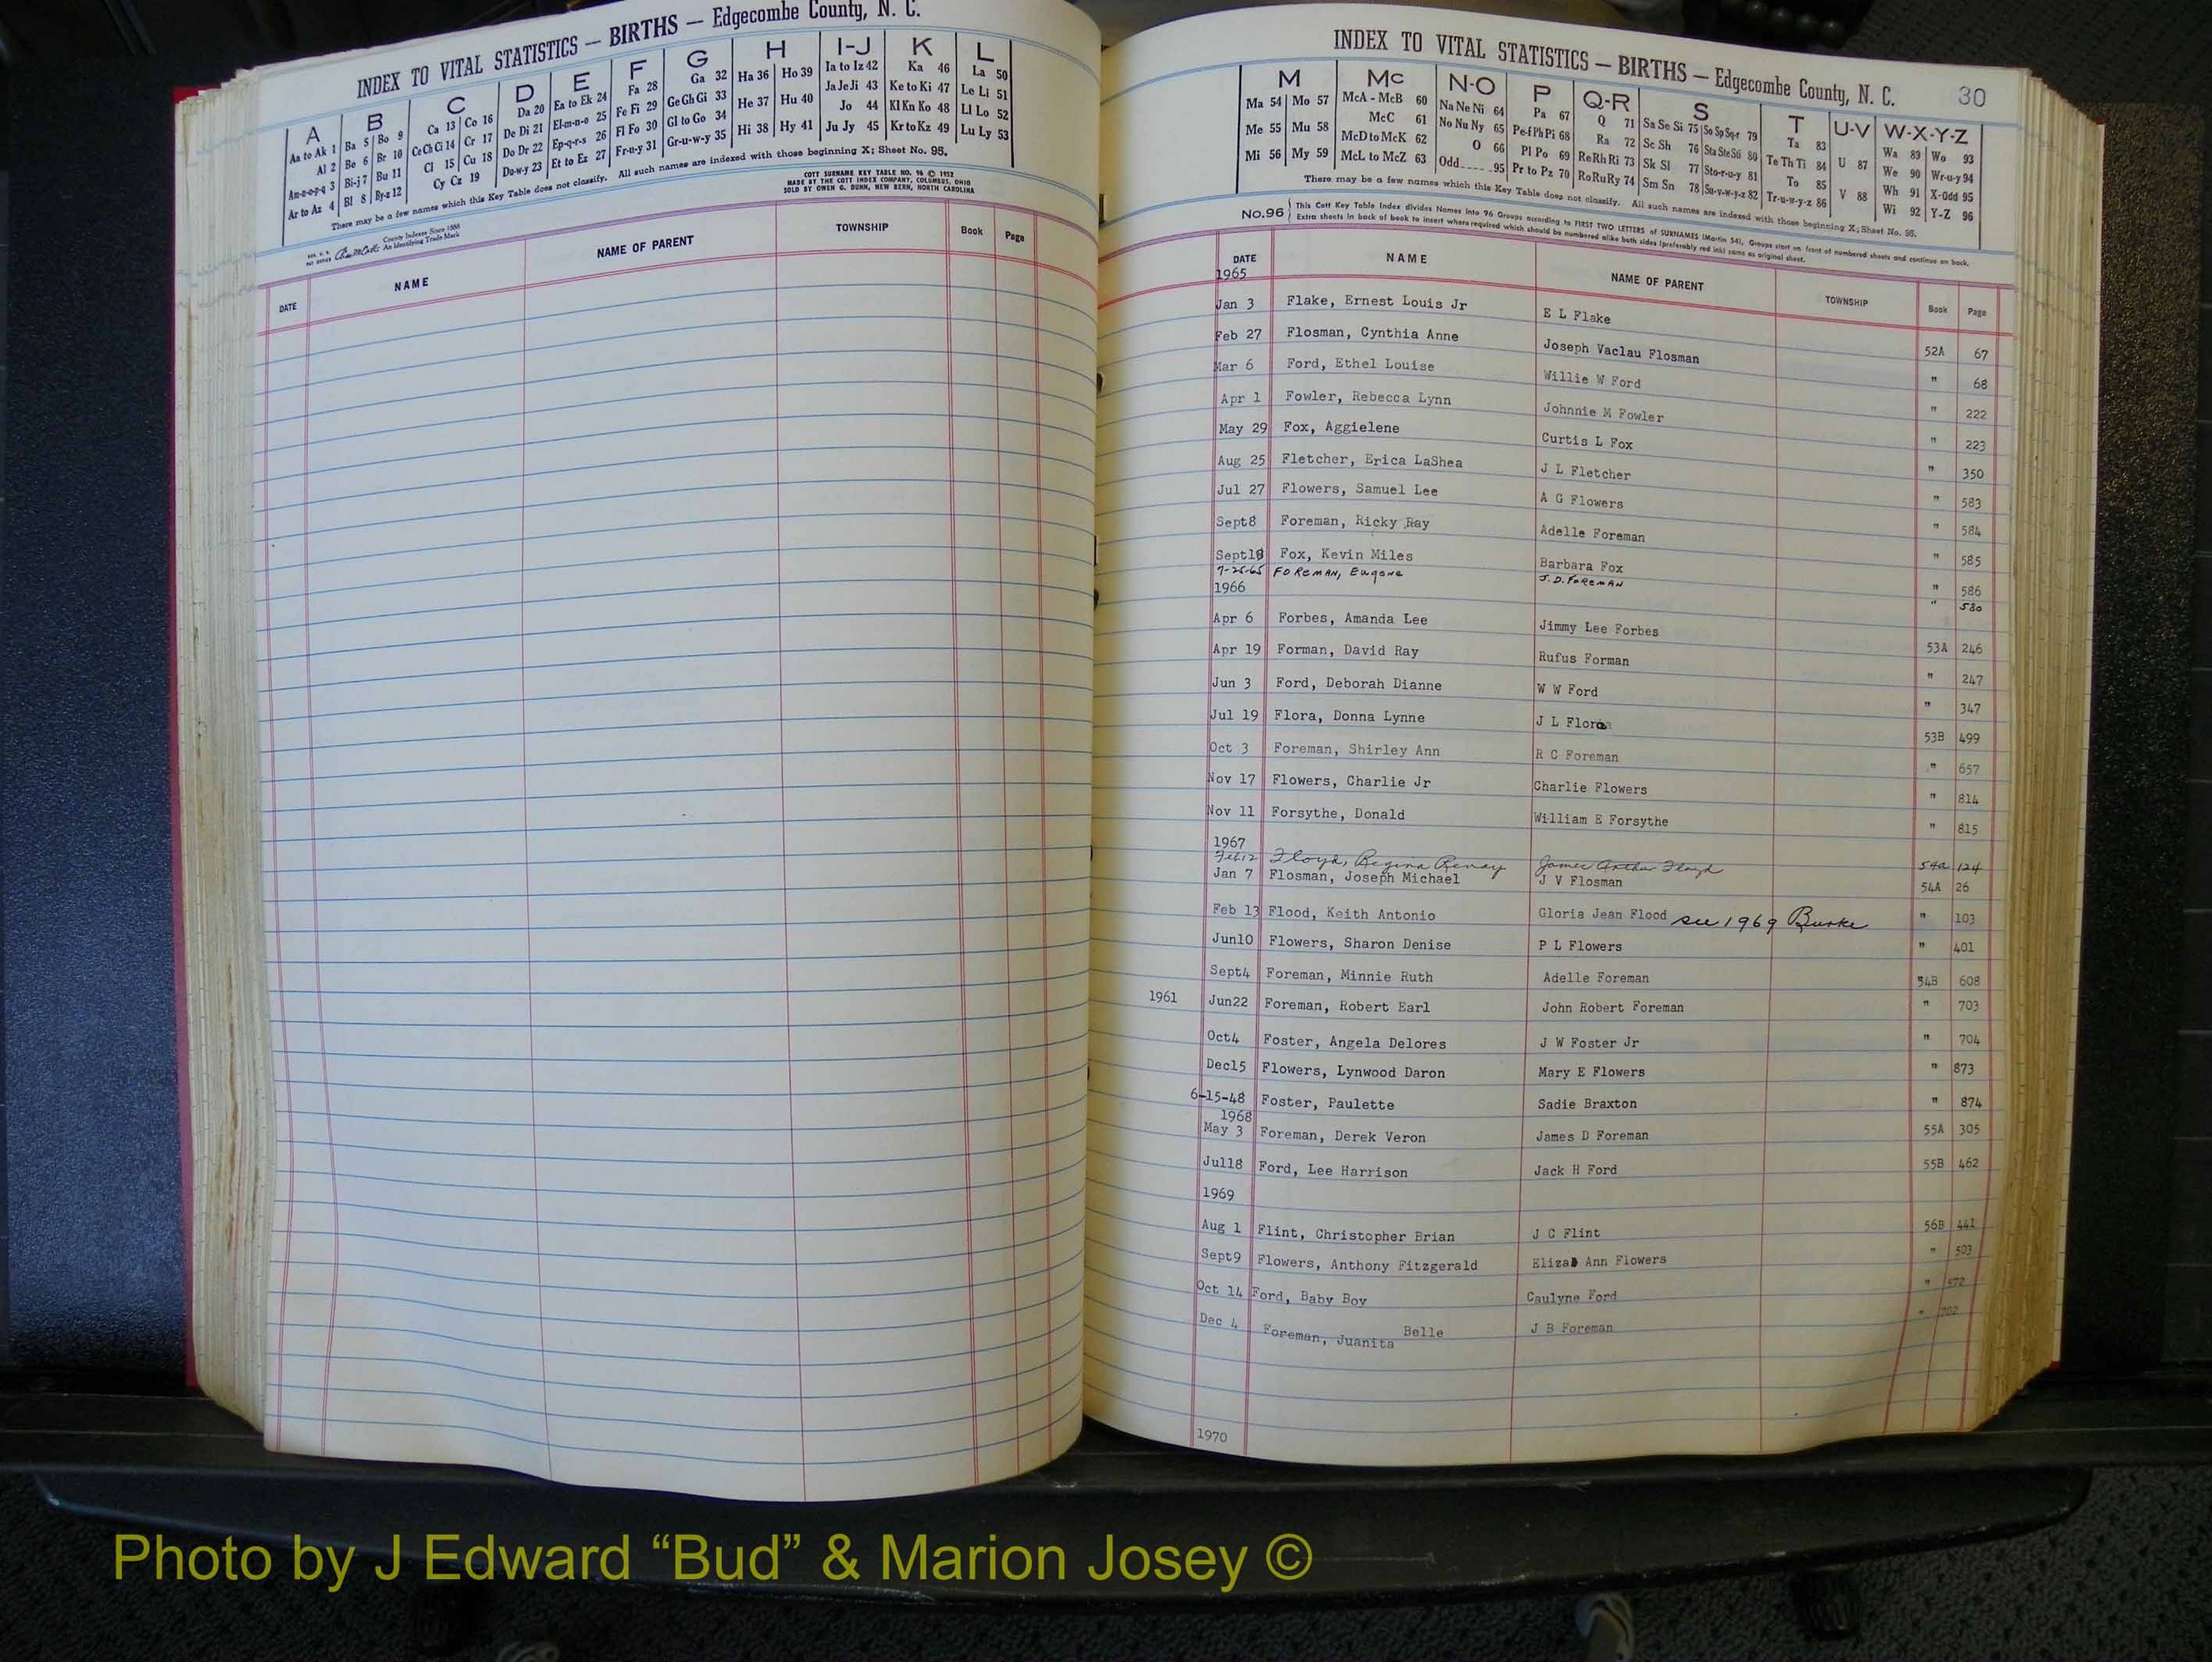 INDEX TO VITAL STATISTICS — BIRTHS — Edgecombe County, N. C.
A B C D E F G H I-J K L
Aa to Ak 1 Ba 5 Bo 9 Ca 13 Co 16 Da 20 Ea to Ek 24 Fa 28 Ga 32 Ha 36 Ho 39 Ia to Iz 42 Ka 46 La 50
Al 2 Be 6 Br 10 Ce Ch Ci 14 Cr 17 De Di 21 El-m-n-o 25 Fe Fi 29 Ge Gh Gi 33 He 37 Hu 40 Ja Je Ji 43 Ke to Ki 47 Le Li 51
Am-n-o-p-q 3 Bi-j 7 Bu 11 Cl 15 Cu 18 Do Dr 22 Ep-q-r-s 26 Fl Fo 30 Gl to Go 34 Hi 38 Hy 41 Jo 44 Kl Kn Ko 48 Ll Lo 52
Ar to Az 4 Bl 8 By-z 12 Cy Cz 19 Du-w-y 23 Et to Ez 27 Fr-u-y 31 Gr-u-w-y 35 Ju Jy 45 Kr to Kz 49 Lu Ly 53
There may be a few names which this Key Table does not classify. All such names are indexed with those beginning X; Sheet No. 95.
County Indexes Since 1888
An Identifying Trade Mark
COTT SURNAME KEY TABLE NO. 96 © 1952
MADE BY THE COTT INDEX COMPANY, COLUMBUS, OHIO
SOLD BY OWEN G. DUNN, NEW BERN, NORTH CAROLINA
DATE NAME NAME OF PARENT TOWNSHIP Book Page
INDEX TO VITAL STATISTICS — BIRTHS — Edgecombe County, N. C. 30
M Mc N-O P Q-R S T U-V W-X-Y-Z
Ma 54 Mo 57 McA - McB 60 Na Ne Ni 64 Pa 67 Q 71 Sa Se Si 75 So Sp Sq-r 79 Ta 83 U 87 Wa 89 Wo 93
Me 55 Mu 58 McC 61 No Nu Ny 65 Pe-f Ph Pi 68 Ra 72 Sc Sh 76 Sta Ste Sti 80 Te Th Ti 84 V 88 We 90 Wr-u-y 94
Mi 56 My 59 McD to McK 62 O 66 Pl Po 69 Re Rh Ri 73 Sk Sl 77 Sto-r-u-y 81 To 85 Wh 91 X-Odd 95
McL to McZ 63 Odd 95 Pr to Pz 70 Ro Ru Ry 74 Sm Sn 78 Su-v-w-y-z 82 Tr-u-w-y-z 86 Wi 92 Y-Z 96
There may be a few names which this Key Table does not classify. All such names are indexed with those beginning X; Sheet No. 95.
No.96 This Cott Key Table Index divides Names into 96 Groups according to FIRST TWO LETTERS of SURNAMES (Martin 54). Groups start on front of numbered sheets and continue on back.
Extra sheets in back of book to insert where required which should be numbered alike both sides (preferably red ink) same as original sheet.
DATE NAME NAME OF PARENT TOWNSHIP Book Page
1965
Jan 3 Flake, Ernest Louis Jr E L Flake 52A 67
Feb 27 Flosman, Cynthia Anne Joseph Vaclau Flosman " 68
Mar 6 Ford, Ethel Louise Willie W Ford " 222
Apr 1 Fowler, Rebecca Lynn Johnnie M Fowler " 223
May 29 Fox, Aggielene Curtis L Fox " 350
Aug 25 Fletcher, Erica LaShea J L Fletcher " 583
Jul 27 Flowers, Samuel Lee A G Flowers " 584
Sept8 Foreman, Ricky Ray Adelle Foreman " 585
Sept18 Fox, Kevin Miles Barbara Fox " 586
7-25-65 FOREMAN, Eugene J.D. FOREMAN " 580
1966
Apr 6 Forbes, Amanda Lee Jimmy Lee Forbes 53A 246
Apr 19 Forman, David Ray Rufus Forman " 247
Jun 3 Ford, Deborah Dianne W W Ford " 347
Jul 19 Flora, Donna Lynne J L Flora 53B 499
Oct 3 Foreman, Shirley Ann R C Foreman " 657
Nov 17 Flowers, Charlie Jr Charlie Flowers " 814
Nov 11 Forsythe, Donald William E Forsythe " 815
1967
Feb 12 Floyd, Regina Renay James Arthur Floyd 54a 124
Jan 7 Flosman, Joseph Michael J V Flosman 54A 26
Feb 13 Flood, Keith Antonio Gloria Jean Flood see 1969 Burke " 103
Jun10 Flowers, Sharon Denise P L Flowers " 401
Sept4 Foreman, Minnie Ruth Adelle Foreman 54B 608
1961 Jun22 Foreman, Robert Earl John Robert Foreman " 703
Oct4 Foster, Angela Delores J W Foster Jr " 704
Dec15 Flowers, Lynwood Daron Mary E Flowers " 873
6-15-48 Foster, Paulette Sadie Braxton " 874
1968
May 3 Foreman, Derek Veron James D Foreman 55A 305
Jul18 Ford, Lee Harrison Jack H Ford 55B 462
1969
Aug 1 Flint, Christopher Brian J C Flint 56B 441
Sept9 Flowers, Anthony Fitzgerald Eliza Ann Flowers " 503
Oct 14 Ford, Baby Boy Caulyne Ford " 572
Dec 4 Foreman, Juanita Belle J B Foreman " 702
1970
Photo by J Edward “Bud” & Marion Josey ©